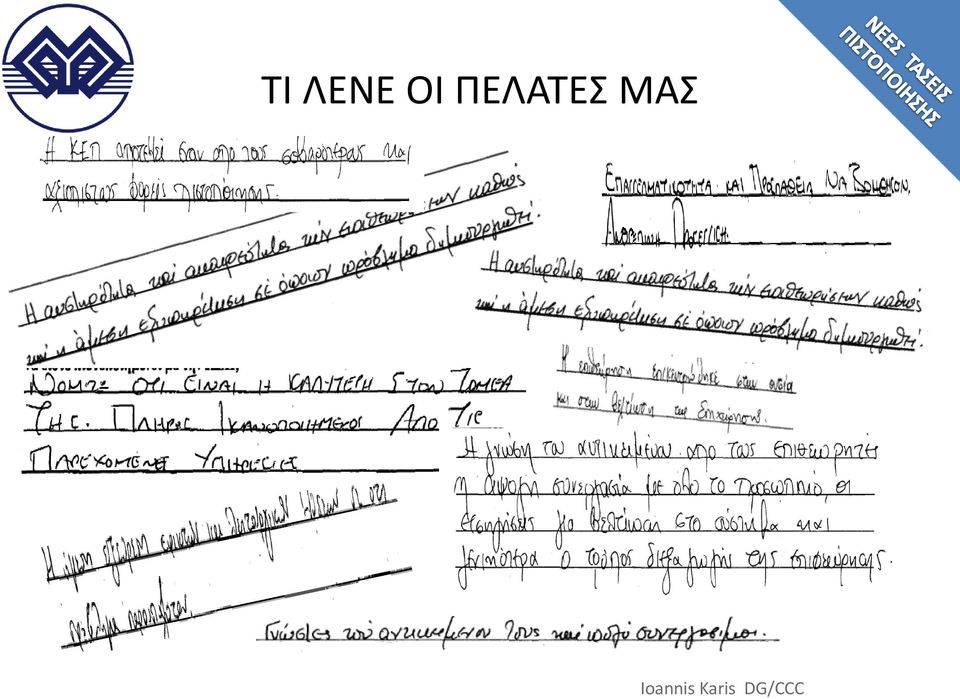 ΝΕΕΣ ΤΑΣΕΙΣ
ΠΙΣΤΟΠΟΙΗΣΗΣ
ΤΙ ΛΕΝΕ ΟΙ ΠΕΛΑΤΕΣ ΜΑΣ
Η ΚΕΠ αποτελεί έναν από τους σοβαρότερους και
αξιόπιστους φορείς πιστοποίησης.
ΕΠΑΓΓΕΛΜΑΤΙΚΟΤΗΤΑ ΚΑΙ ΠΡΟΣΠΑΘΕΙΑ ΝΑ ΒΟΗΘΗΣΟΥΝ.
ΑΝΘΡΩΠΙΝΗ ΠΡΟΣΕΓΓΙΣΗ.
Η αυστηρότητα και ακεραιότητα των επιθεωρήσεων καθώς
και η άμεση εξυπηρέτηση σε όποιον πρόβλημα δημιουργηθεί.
Η αυστηρότητα και ακεραιότητα των επιθεωρήσεων καθώς
και η άμεση εξυπηρέτηση σε όποιον πρόβλημα δημιουργηθεί.
ΝΟΜΙΖΩ ΟΤΙ ΕΙΝΑΙ Η ΚΑΛΥΤΕΡΗ ΣΤΟΝ ΤΟΜΕΑ
ΤΗΣ. ΠΛΗΡΩΣ ΙΚΑΝΟΠΟΙΗΜΕΝΟΙ ΑΠΟ ΤΙΣ
ΠΑΡΕΧΟΜΕΝΕΣ ΥΠΗΡΕΣΙΕΣ
Η επιθεώρηση επικεντρώθηκε στην ουσία
και στην βελτίωση της επιχείρησης.
Η γνώση του αντικειμένου από τους επιθεωρητές
η άψογη συνεργασία με όλο το προσωπικό, οι
εισηγήσεις για βελτίωση στο σύστημα και
γενικότερα ο τρόπος διεξαγωγής της επιθεώρησης.
Η άμεση και
πρόβλημα
Γνώστες του αντικειμένου τους και πολύ συνεργάσιμοι.
Ioannis Karis DG/CCC